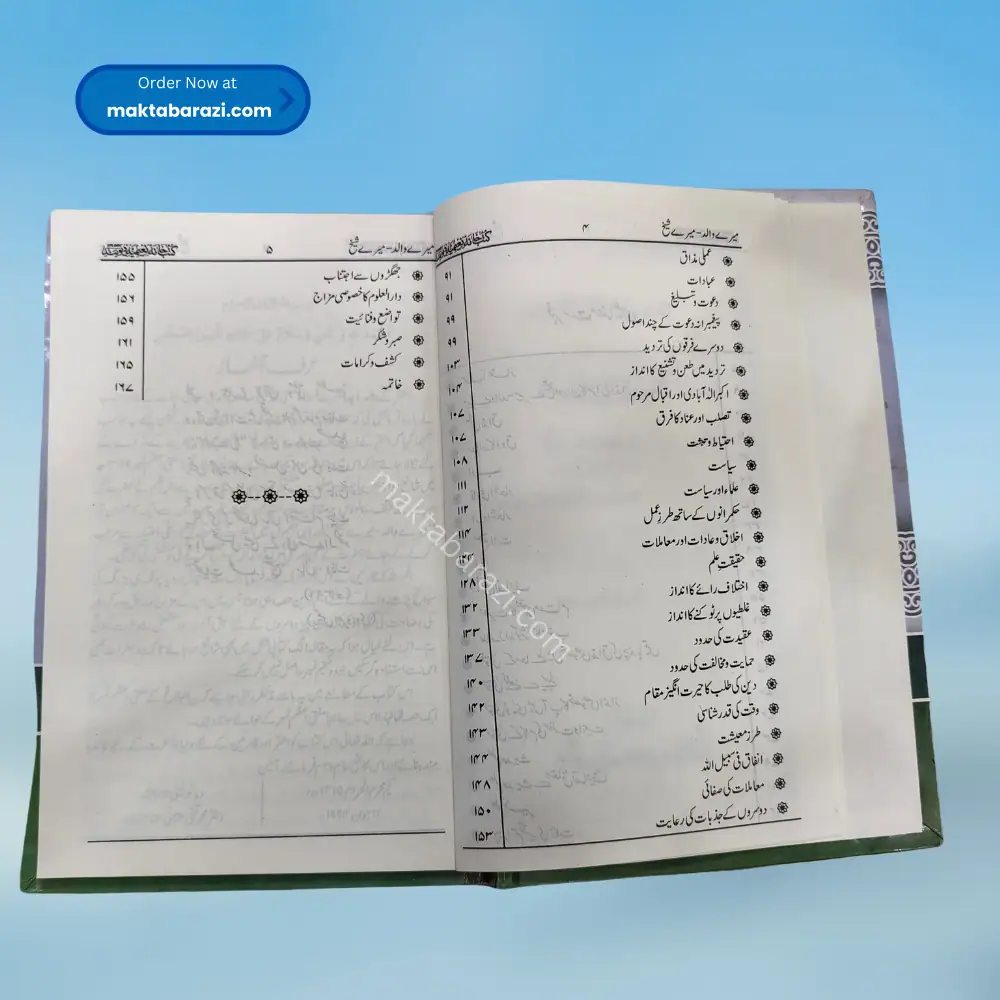 Order Now at
maktabarazi.com
میرے والد-میرے شیخ ۴ کتب خانہ نعیمیہ دیوبند
عملی مذاق ۹۱
عبادات ۹۱
دعوت و تبلیغ ۹۹
پیغمبرانہ دعوت کے چند اصول ۹۹
دوسرے فرقوں کی تردید ۱۰۳
تردید میں طعن و تشنیع کا انداز ۱۰۴
اکبر الٰہ آبادی اور اقبال مرحوم ۱۰۷
تصلب اور عناد کا فرق ۱۰۷
احتیاط و تثبت ۱۰۸
سیاست ۱۱۱
علماء اور سیاست ۱۱۲
حکمرانوں کے ساتھ طرزِ عمل ۱۱۴
اخلاق و عادات اور معاملات ۱۲۴
حقیقتِ علم ۱۲۸
اختلاف رائے کا انداز ۱۳۲
غلطیوں پر ٹوکنے کا انداز ۱۳۳
عقیدت کی حدود ۱۳۷
حمایت و مخالفت کی حدود ۱۴۰
دین کی طلب کا حیرت انگیز مقام ۱۴۲
وقت کی قدر شناسی ۱۴۳
طرز معیشت ۱۴۴
انفاق فی سبیل اللہ ۱۴۸
معاملات کی صفائی ۱۵۰
دوسروں کے جذبات کی رعایت ۱۵۳
میرے والد-میرے شیخ ۵ کتب خانہ نعیمیہ دیوبند
جھگڑوں سے اجتناب ۱۵۵
دارالعلوم کا خصوصی مزاج ۱۵۶
تواضع و فنائیت ۱۵۹
صبر و شکر ۱۶۱
کشف و کرامات ۱۶۵
خاتمہ ۱۶۷
maktabarazi.com